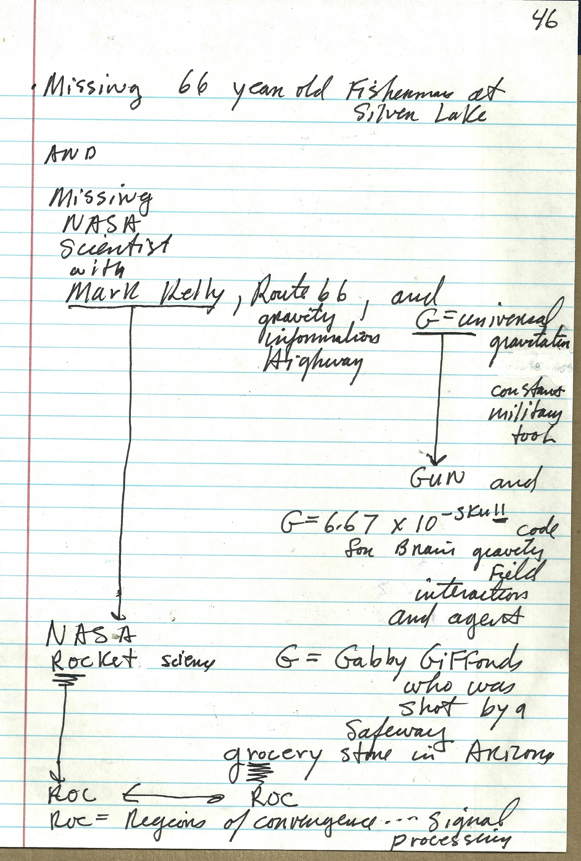 46
. Missing 66 year old Fisherman at
Silver Lake
AND
Missing
NASA
Scientist
with
Mark Kelly, Route 66, and
gravity
information
Highway
G = universal
gravitation
constant
military
tool
GUN and
G = 6.67 x 10 -skull code
for Brain gravity
Field
interactions
and agent
NASA
Rocket science
G = Gabby Giffords
who was
shot by a
Safeway
grocery store in Arizona
ROC ROC
Roc = Regions of convergence ... signal
processing